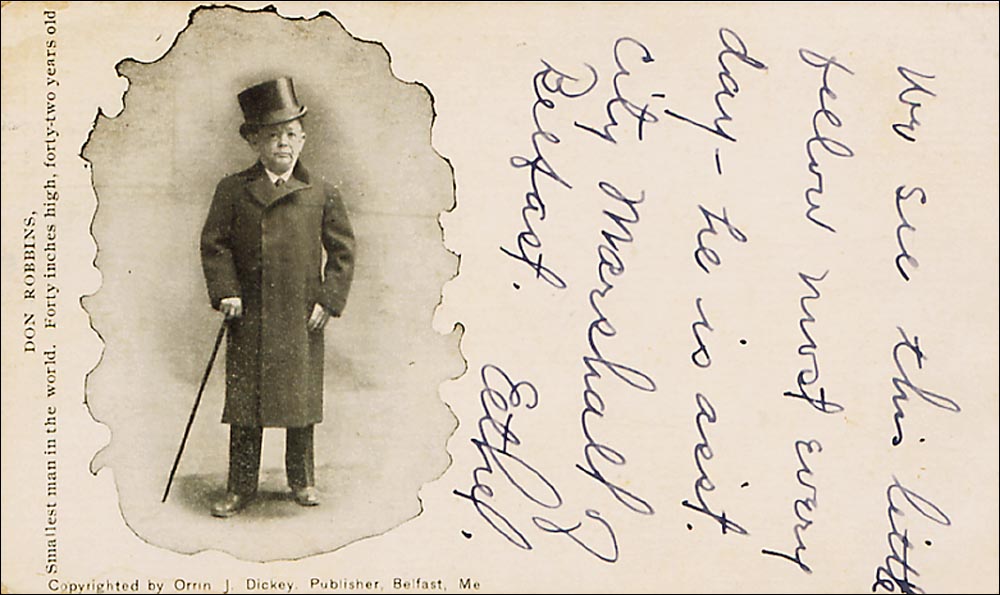 DON ROBBINS,
Smallest man in the world. Forty inches high, forty-two years old
Copyrighted by Orrin J. Dickey. Publisher, Belfast, Me
We see this little
fellow most every
day - he is assist.
City Marshall of
Belfast. Ethel.